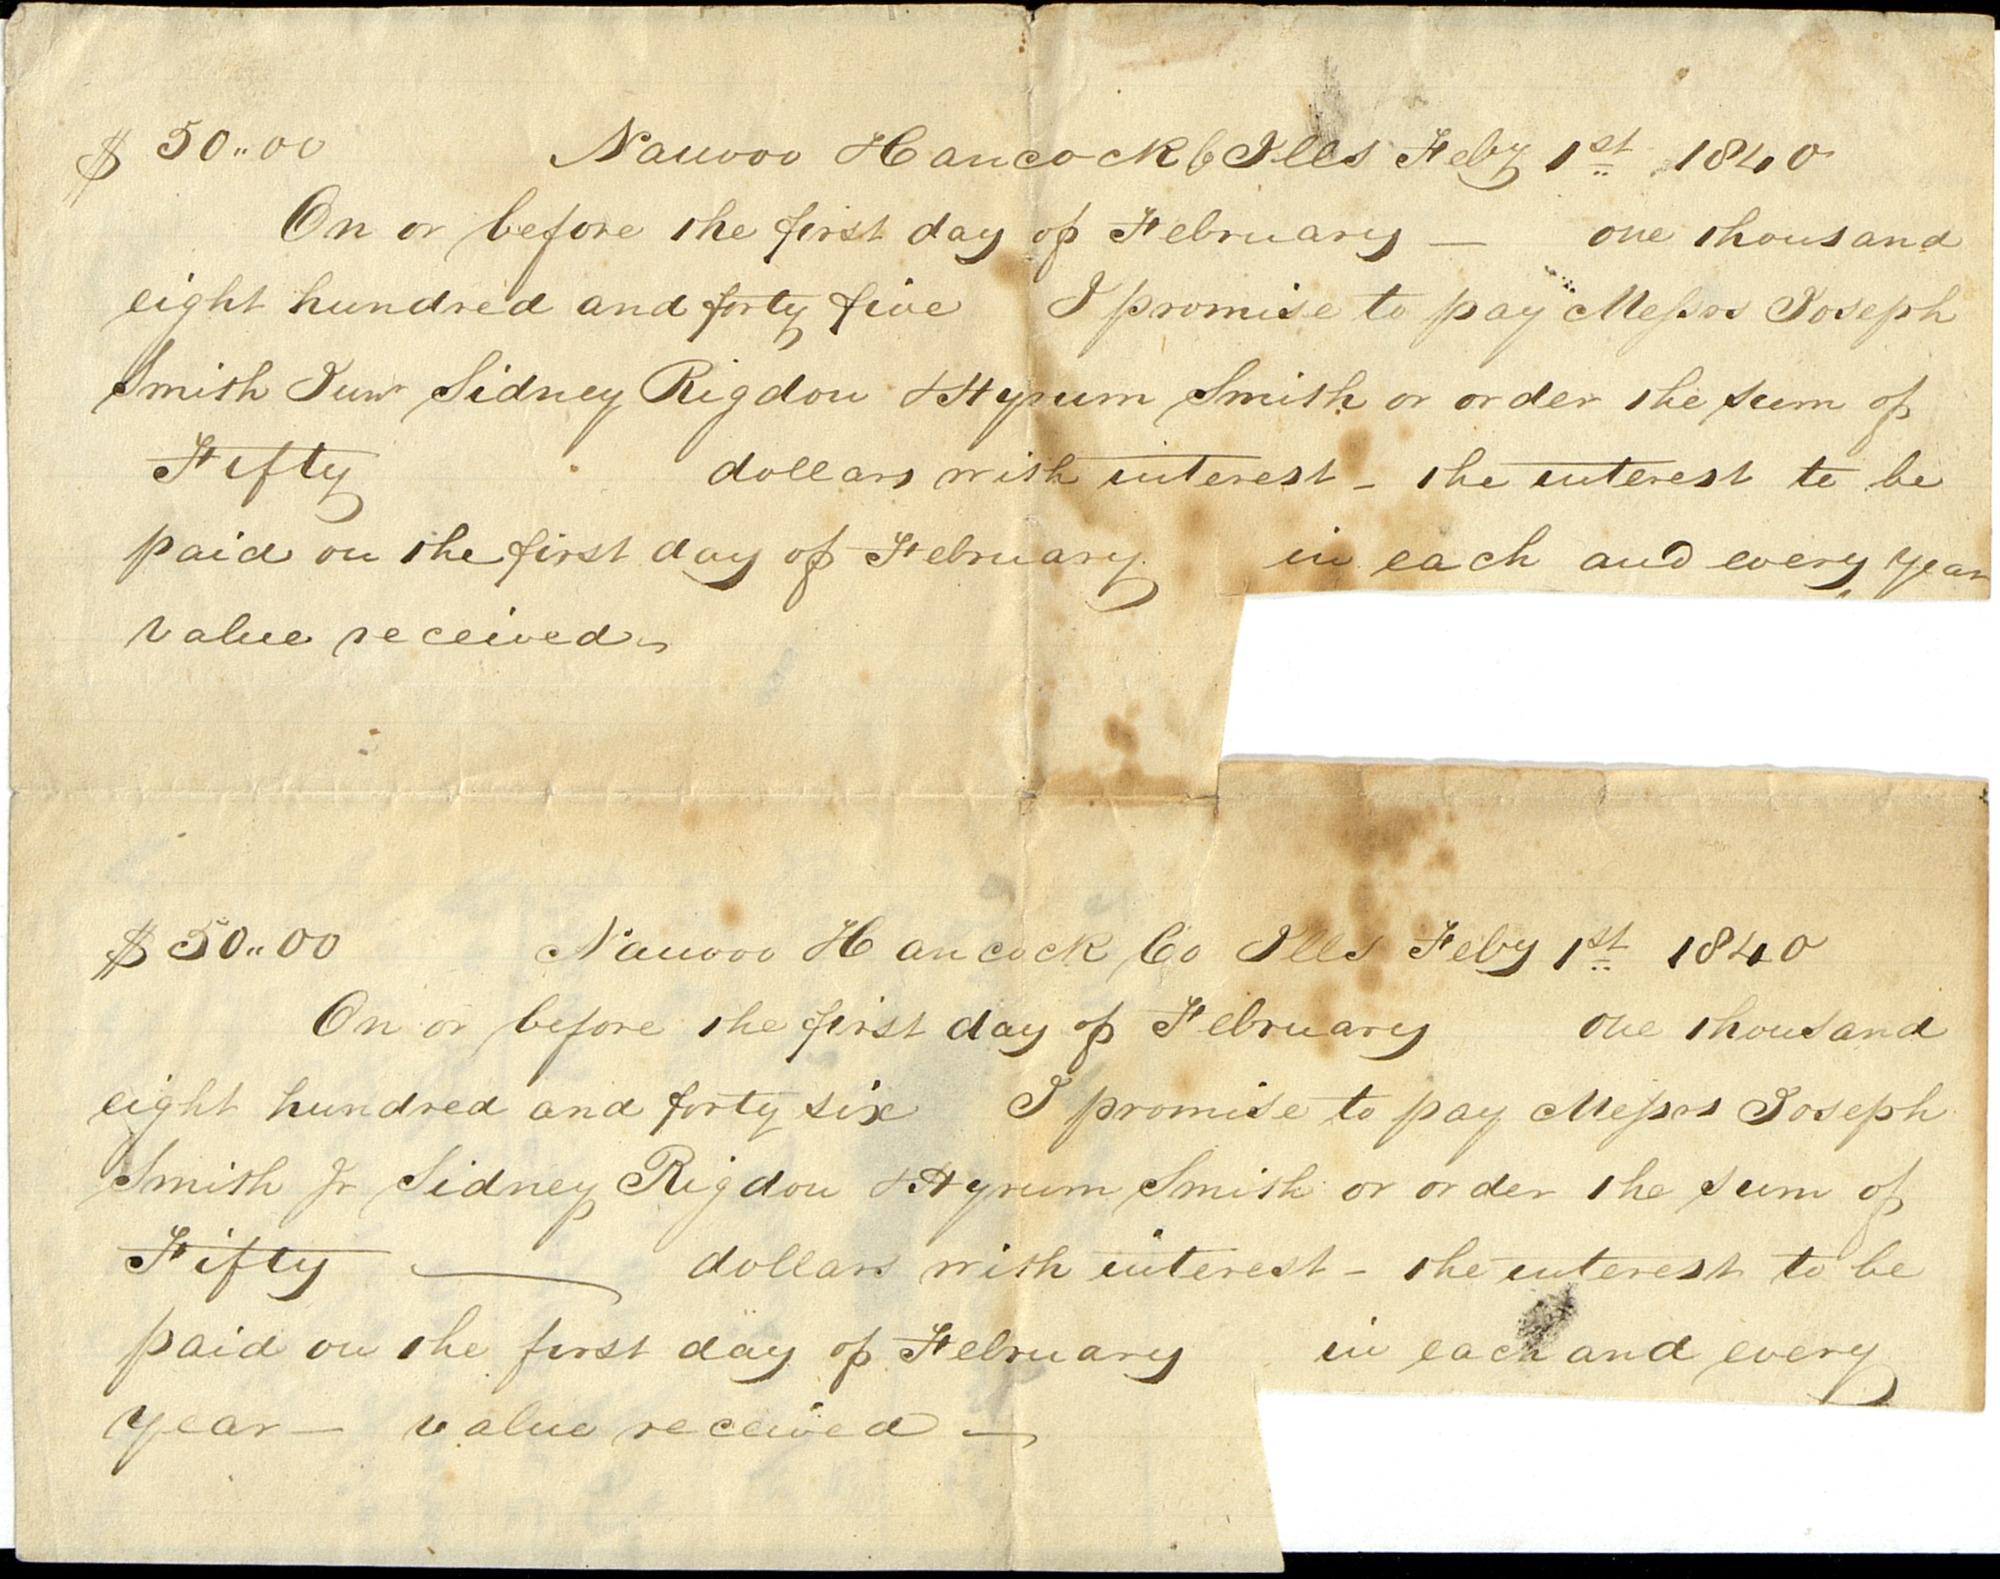 $ 50..00 Nauvoo Hancock Co Ills Feby 1st 1840
On or before the first day of February — one thousand
eight hundred and forty five I promise to pay Messrs Joseph
Smith Junr Sidney Rigdon & Hyrum Smith or order the sum of
Fifty dollars with interest - the interest to be
paid on the first day of February in each and every year
value received -
$ 50..00 Nauvoo Hancock Co Ills Feby 1st 1840
On or before the first day of February one thousand
eight hundred and forty six I promise to pay Messrs Joseph
Smith Jr Sidney Rigdon & Hyrum Smith or order the sum of
Fifty — dollars with interest - the interest to be
paid on the first day of February in each and every
year — value received —